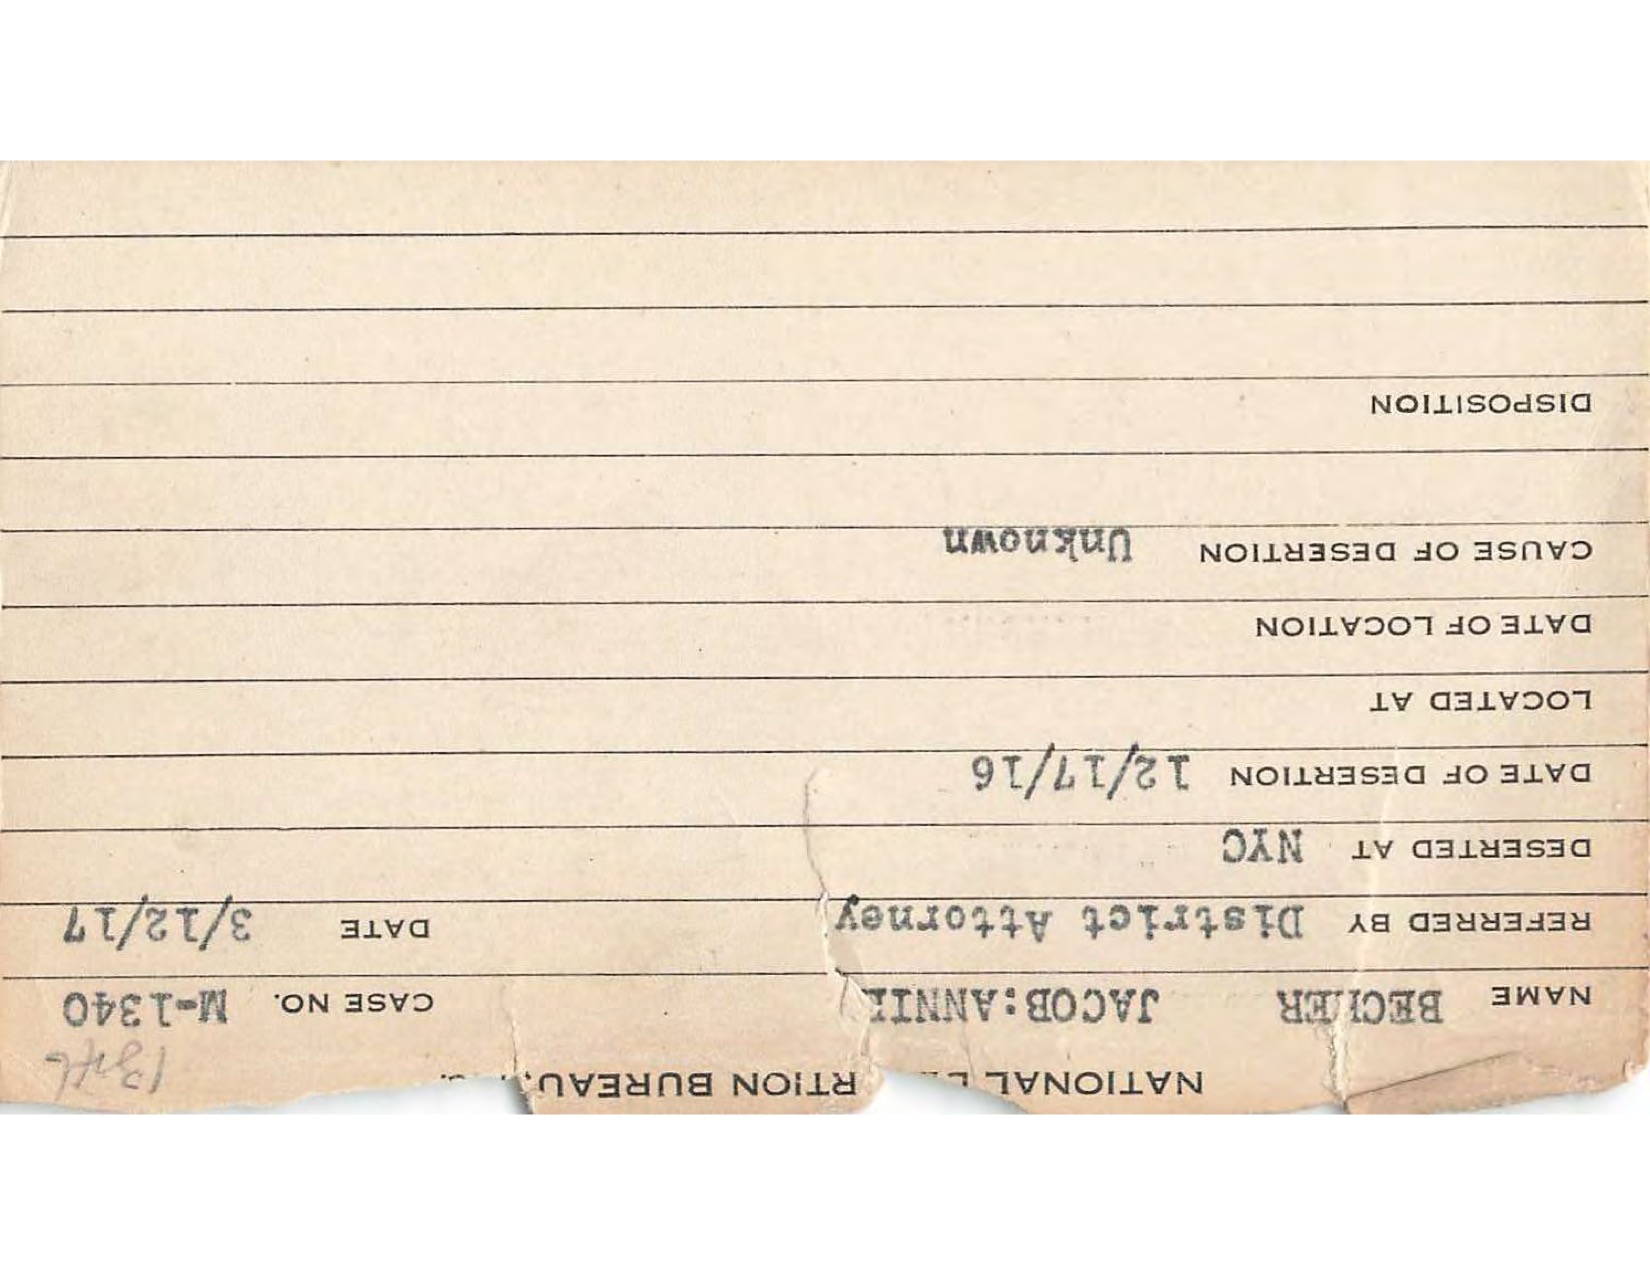 NATIONAL RTION BUREAU,
NAME BECHER JACOB:ANNIE CASE NO. M-1340
REFERRED BY District Attorney DATE 3/12/17
DESERTED AT NYC
DATE OF DESERTION 12/17/16
LOCATED AT
DATE OF LOCATION
CAUSE OF DESERTION Unknown
DISPOSITION